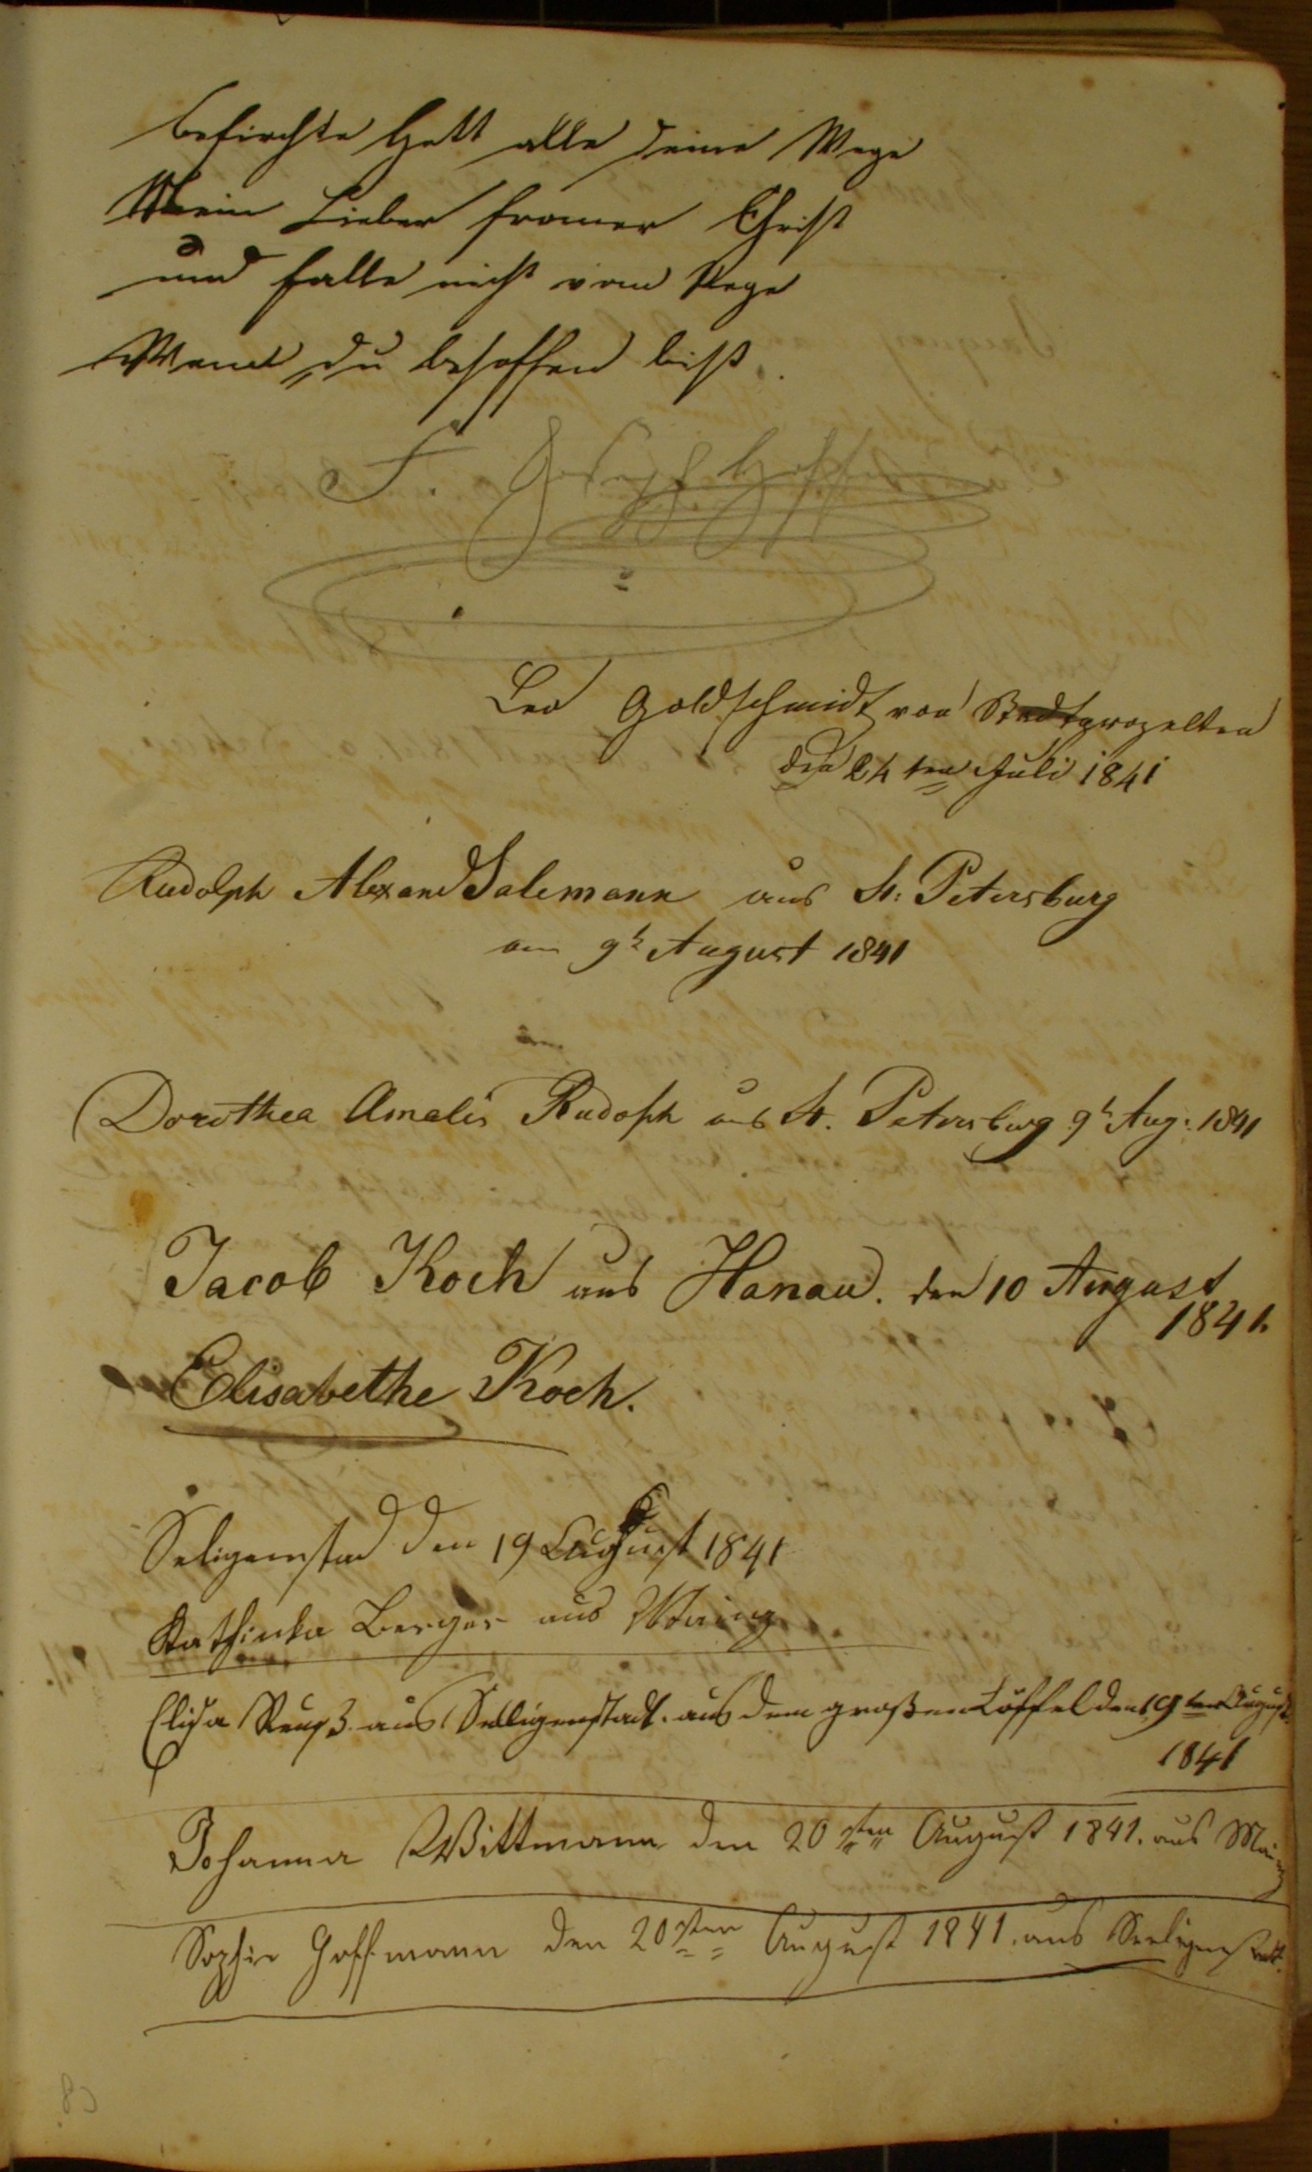 befirchte Gott alle deine Wege
Mein Lieber fromer Christ
und falle nicht vom Stege
Wenn du besoffen bist.
F. Joseph
Leo Goldschmidt von Stadtprozelten
den 24ten Juli 1841
Rudolph Alexand Salemann aus St. Petersburg
am 9t August 1841
Dorothea Amalie Rudolph aus St. Petersburg 9t Aug: 1841
Jacob Koch aus Hanau. den 10 August
1841.
Elisabethe Koch.
Seligenstad den 19 August 1841
Kathinka Berger aus Mainz
Elisa Reuß aus Selligenstadt. aus dem großen Löffel den 19ten August
1841
Johanna Wittmann den 20sten August 1841. aus Mainz
Sophie Hoffmann den 20sten August 1841. aus Seeligenstatt.